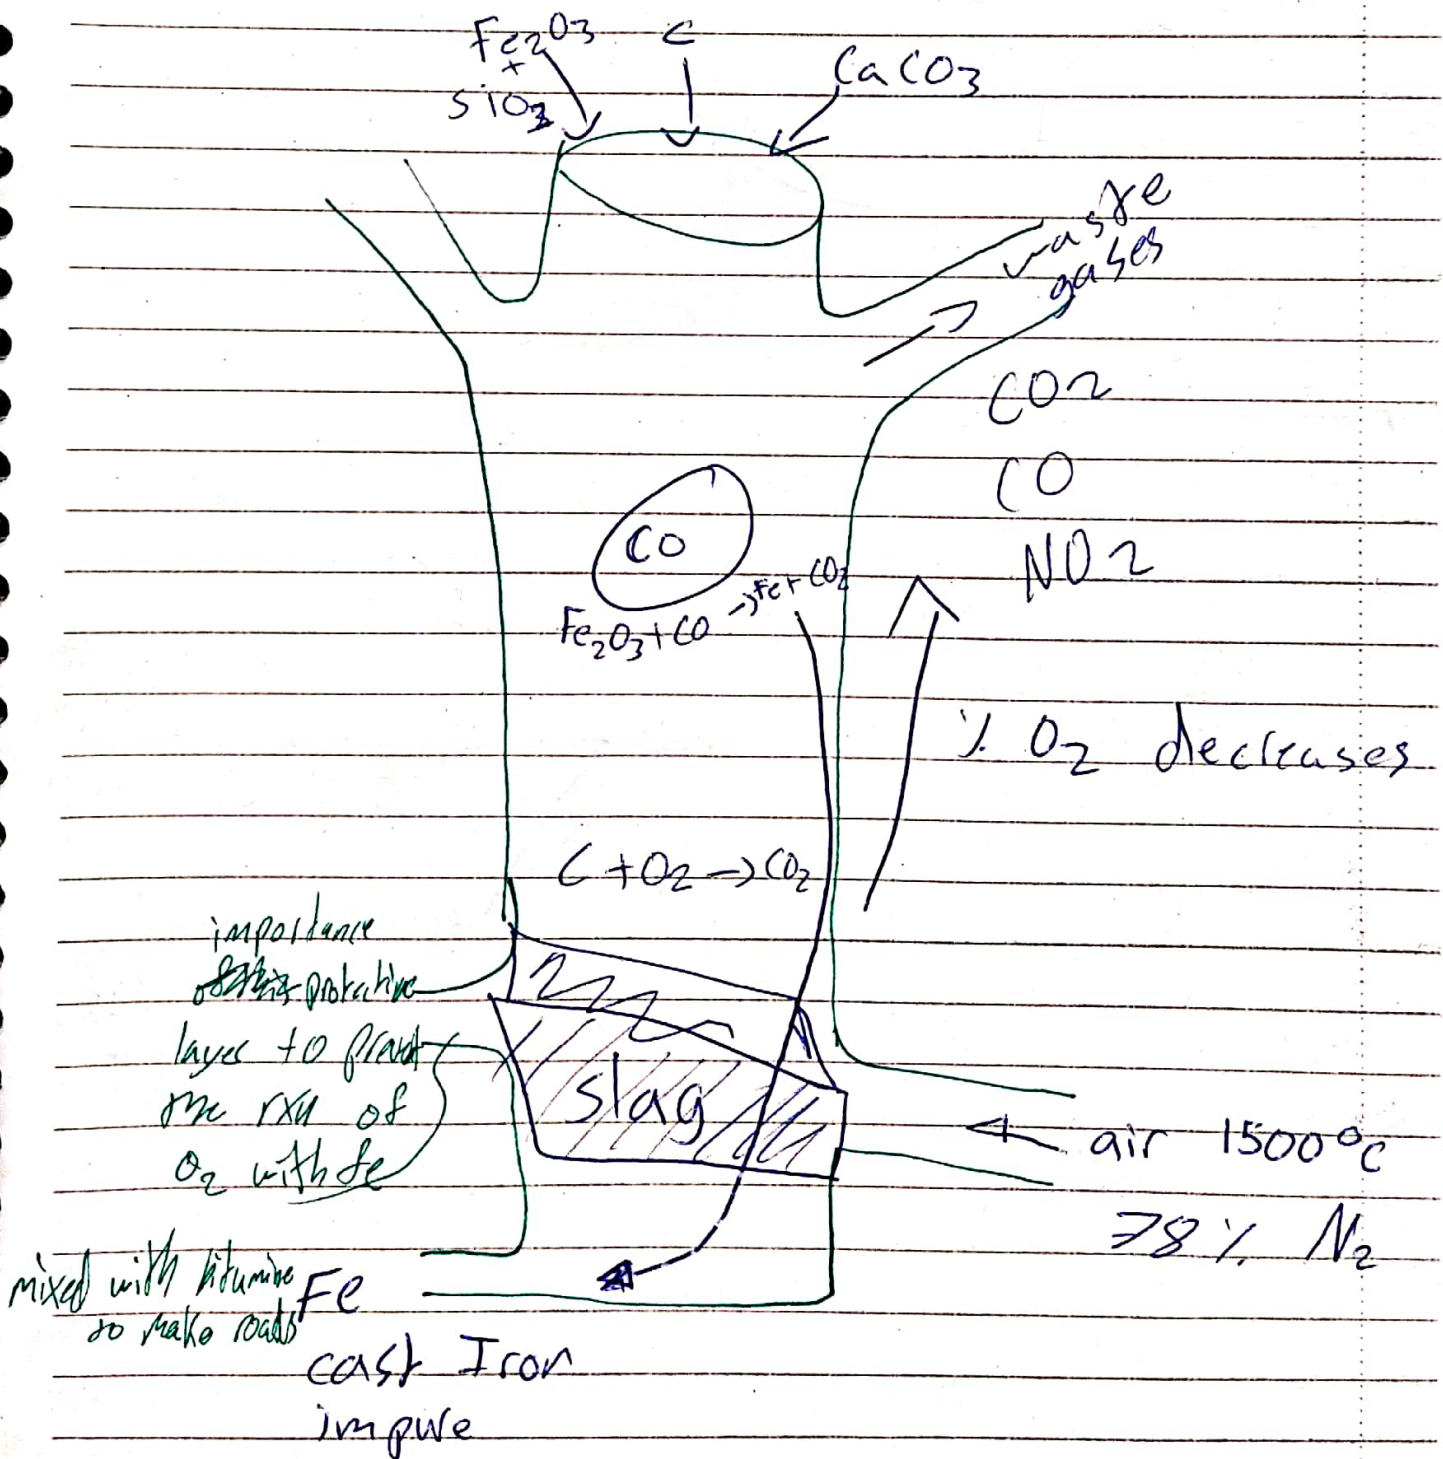 Fe2O3
+
SiO2
C
CaCO3
waste
gases
CO2
CO
NO2
CO
Fe2O3+CO → Fe+CO2
% O2 decreases
C+O2→CO2
importance
protective
layer to prevent
the rxn of
O2 with fe
slag
air 1500°C
78% N2
mixed with bitumine
to make roads
Fe
cast Iron
impure